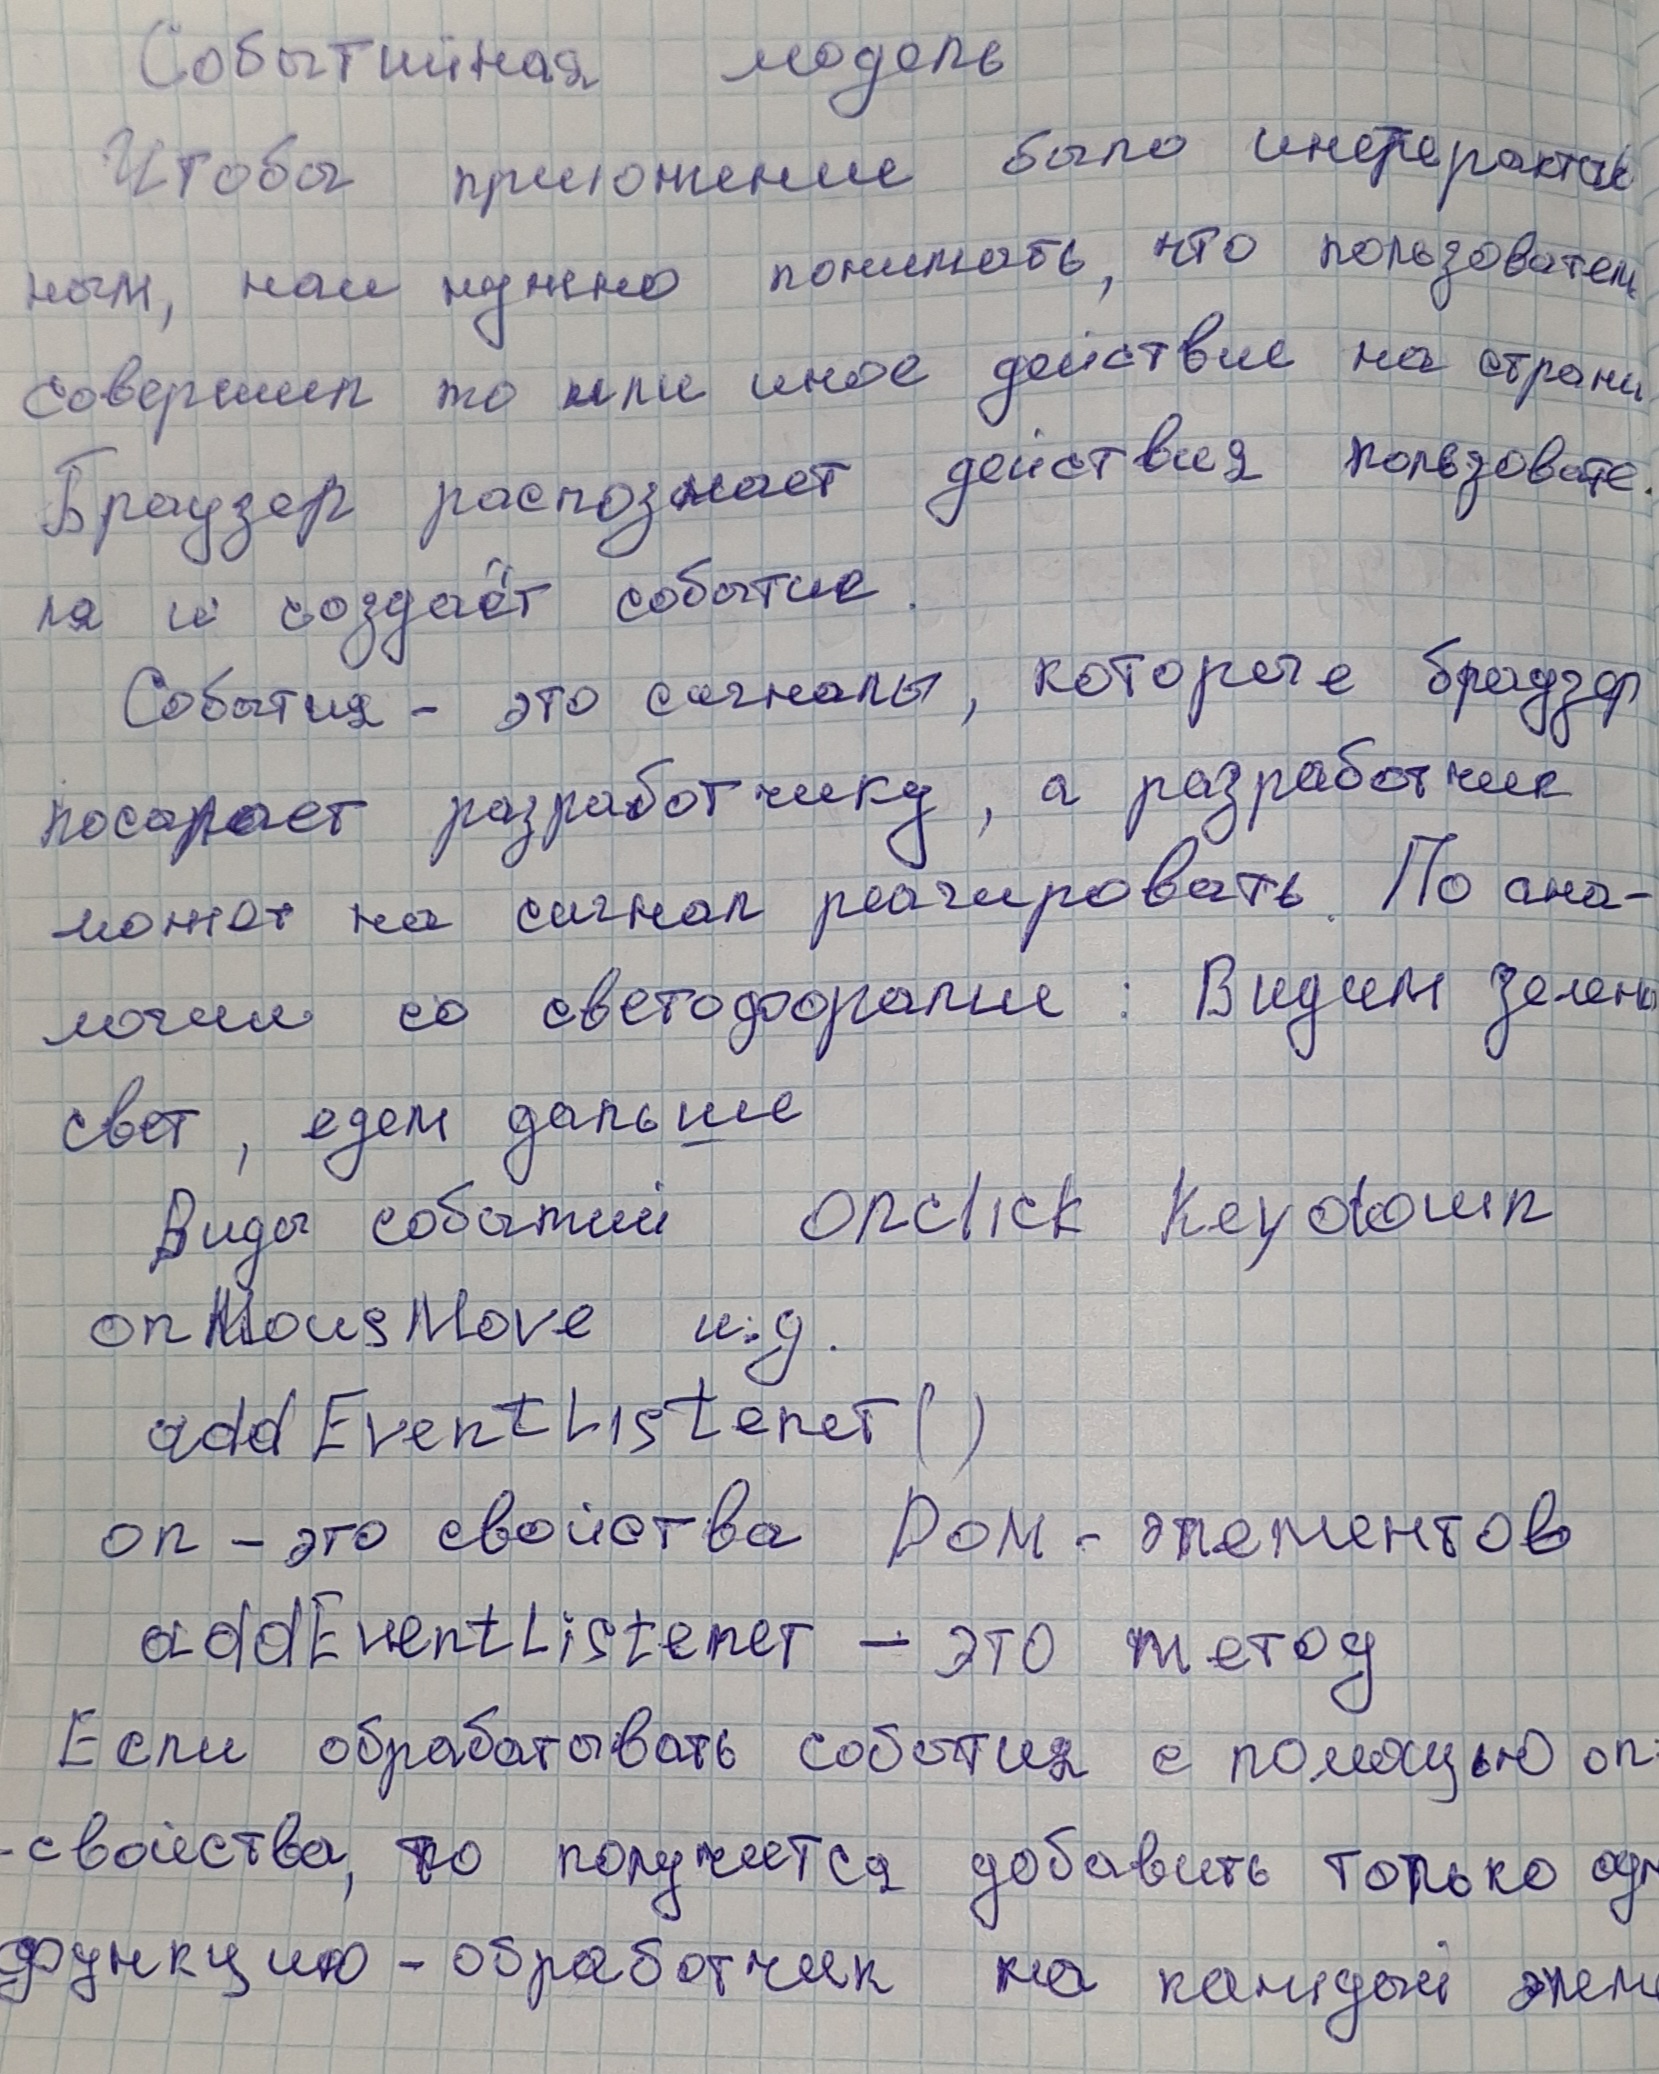 Событийная модель
Чтобы приложение было интерактив
ным, нам нужно понимать, что пользователь
совершил то или иное действие на страни
Браузер распознает действия пользовате.
ля и создаёт событие.
События - это сигналы, которые браузер
посылает разработчику, а разработчик
может на сигнал реагировать. По ана-
логии со светофорами : Видим зелены
свет, едем дальше
Виды событий onclick Keydown
onMousMove и.д.
addEventListener()
on - это свойства DOM - элементов
addEventListener - это метод
Если обрабатывать события с помощью on-
-свойства, то получится добавить только одн
функцию - обработчик на каждый элеме